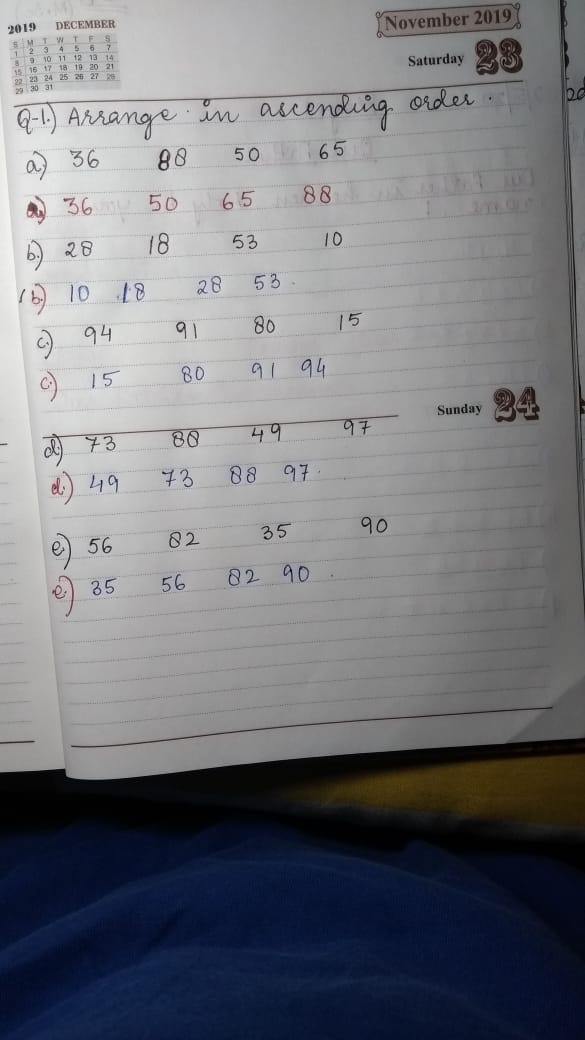 2019 DECEMBER
S M T W T F S
1 2 3 4 5 6 7
8 9 10 11 12 13 14
15 16 17 18 19 20 21
22 23 24 25 26 27 28
29 30 31
November 2019
Saturday 23
Q-1.) Arrange in ascending order.
a) 36 88 50 65
a) 36 50 65 88
b.) 28 18 53 10
b) 10 18 28 53.
c.) 94 91 80 15
c.) 15 80 91 94
Sunday 24
d.) 73 88 49 97
d.) 49 73 88 97.
e.) 56 82 35 90
e.) 35 56 82 90.